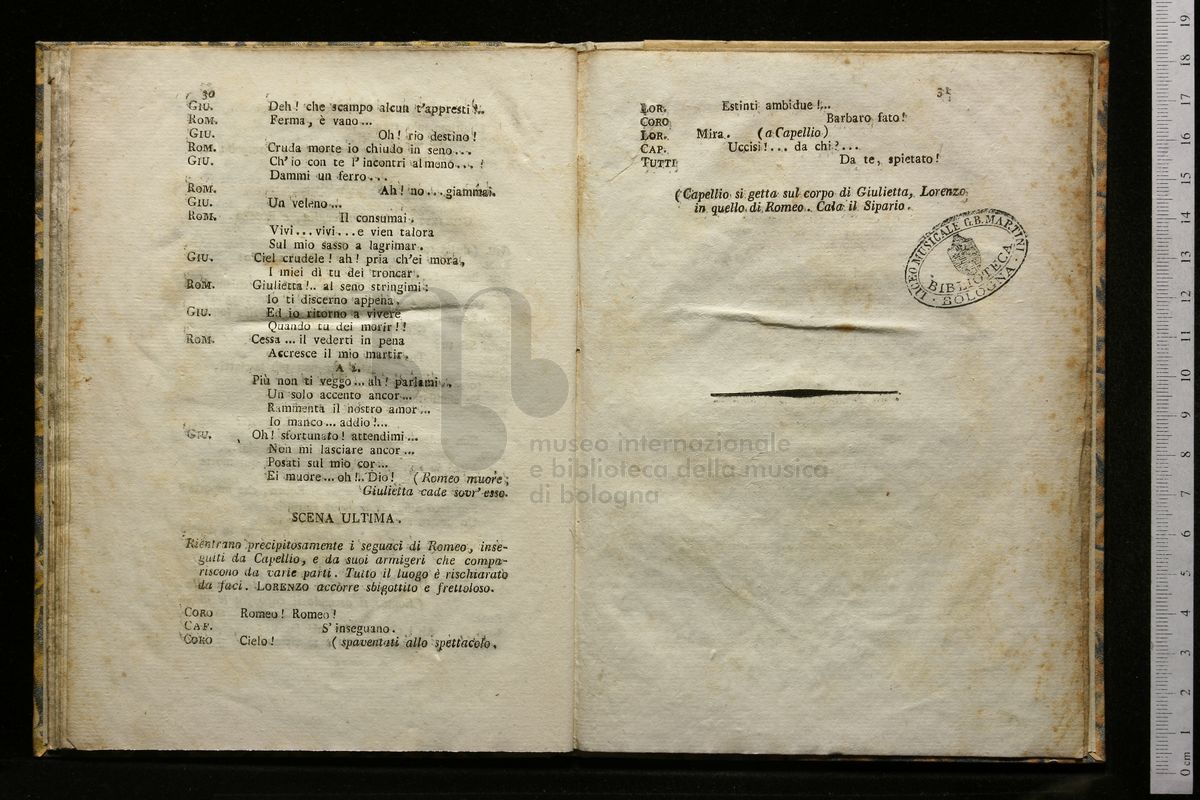 30
GIU. Deh! che scampo alcun t'appresti!..
ROM. Ferma, è vano...
GIU. Oh! rio destino!
ROM. Cruda morte io chiudo in seno...
GIU. Ch'io con te l'incontri almeno... !
Dammi un ferro...
ROM. Ah! no...giammai.
GIU. Un veleno...
ROM. Il consumai.
Vivi...vivi...e vien talora
Sul mio sasso a lagrimar.
GIU. Ciel crudele! ah! pria ch'ei mora,
I miei dì tu dei troncar.
ROM. Giulietta!.. al seno stringimi:
Io ti discerno appena.
GIU. Ed io ritorno a vivere
Quando tu dei morir!!
ROM. Cessa ... il vederti in pena
Accresce il mio martir.
A 2.
Più non ti veggo... ah! parlami...
Un solo accento ancor...
Rammenta il nostro amor...
Io manco... addio!...
GIU. Oh! sfortunato! attendimi...
Non mi lasciare ancor...
Posati sul mio cor...
Ei muore... oh!.. Dio! (Romeo muore;
Giulietta cade sovr'esso.
SCENA ULTIMA.
Rientrano precipitosamente i seguaci di Romeo, inse-
guiti da Capellio, e da suoi armigeri che compa-
riscono da varie parti. Tutto il luogo è rischiarato
da faci. LORENZO accorre sbigottito e frettoloso.
CORO Romeo! Romeo!
CAP. S'inseguano.
CORO Cielo! (spaventati allo spettacolo.
31
LOR. Estinti ambidue!...
CORO Barbaro fato!
LOR. Mira. (a Capellio)
CAP. Uccisi!... da chi?...
TUTTI Da te, spietato!
(Capellio si getta sul corpo di Giulietta, Lorenzo
in quello di Romeo. Cala il Sipario.
LICEO MUSICALE G.B. MARTINI
BIBLIOTECA
BOLOGNA
museo internazionale
e biblioteca della musica
di bologna
19
18
17
16
15
14
13
12
11
10
9
8
7
6
5
4
3
2
1
0 cm